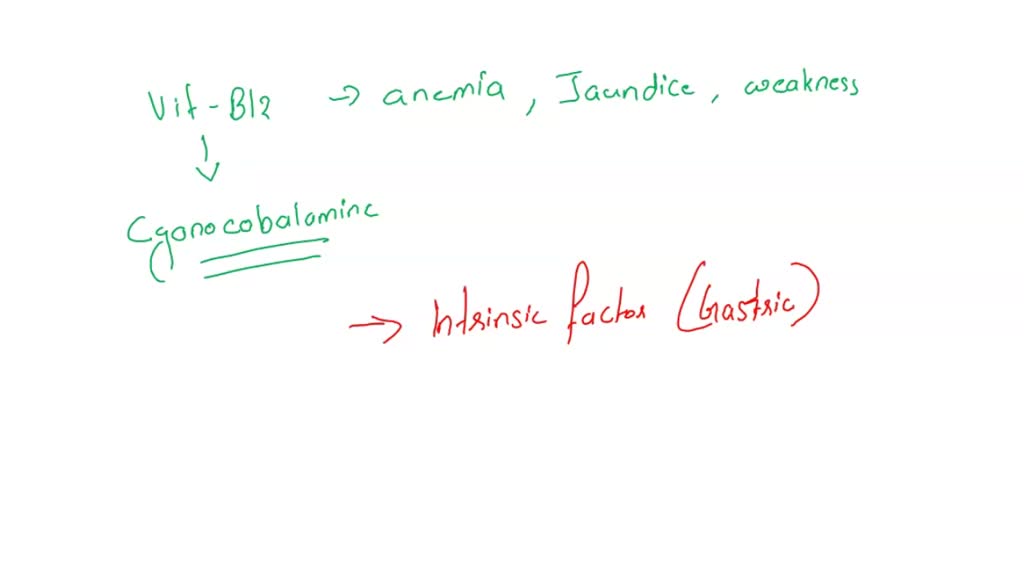 Vit-B12 → anemia, Jaundice, weakness
↓
Cyanocobalamine
→ Intrinsic factor (Gastric)